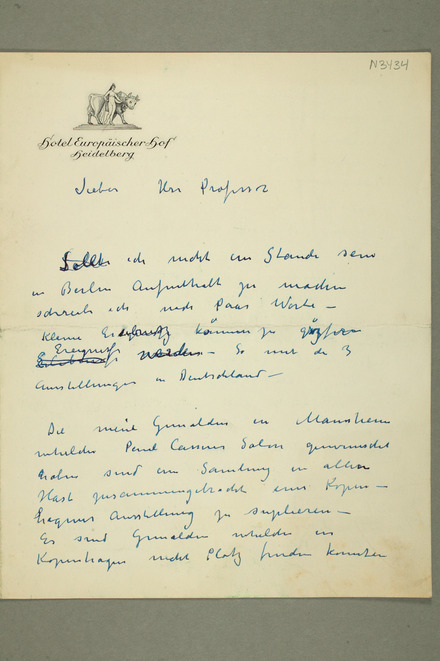 N3434
Hotel Europäischer Hof
Heidelberg
Lieber Herr Professor
Sollte ich nicht im Stande sein
in Berlin Aufenthalt zu machen
schreib ich nach Paar Worte –
Kleine können zu
Ereigniss werden – So mit de 3
Ausstellungen in Deutschland –
Die meine Gemälden in Manheim
whelde Paul Cassirer Salon gewunscht
haben sind ein Samlung in aller
Hast zusammengebracht eine Kopen –
hagener Ausstellung zu suplieren –
Es sind Gemälden whelde in
Kopenhagen nicht Platz finden konnten